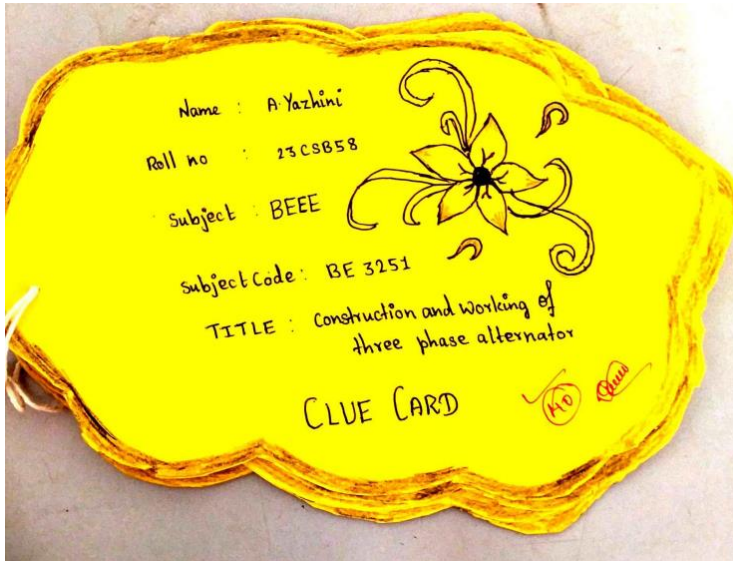 Name : A. Yazhini
Roll no : 23CSB58
Subject : BEEE
Subject Code : BE 3251
TITLE : Construction and working of
three phase alternator
CLUE CARD